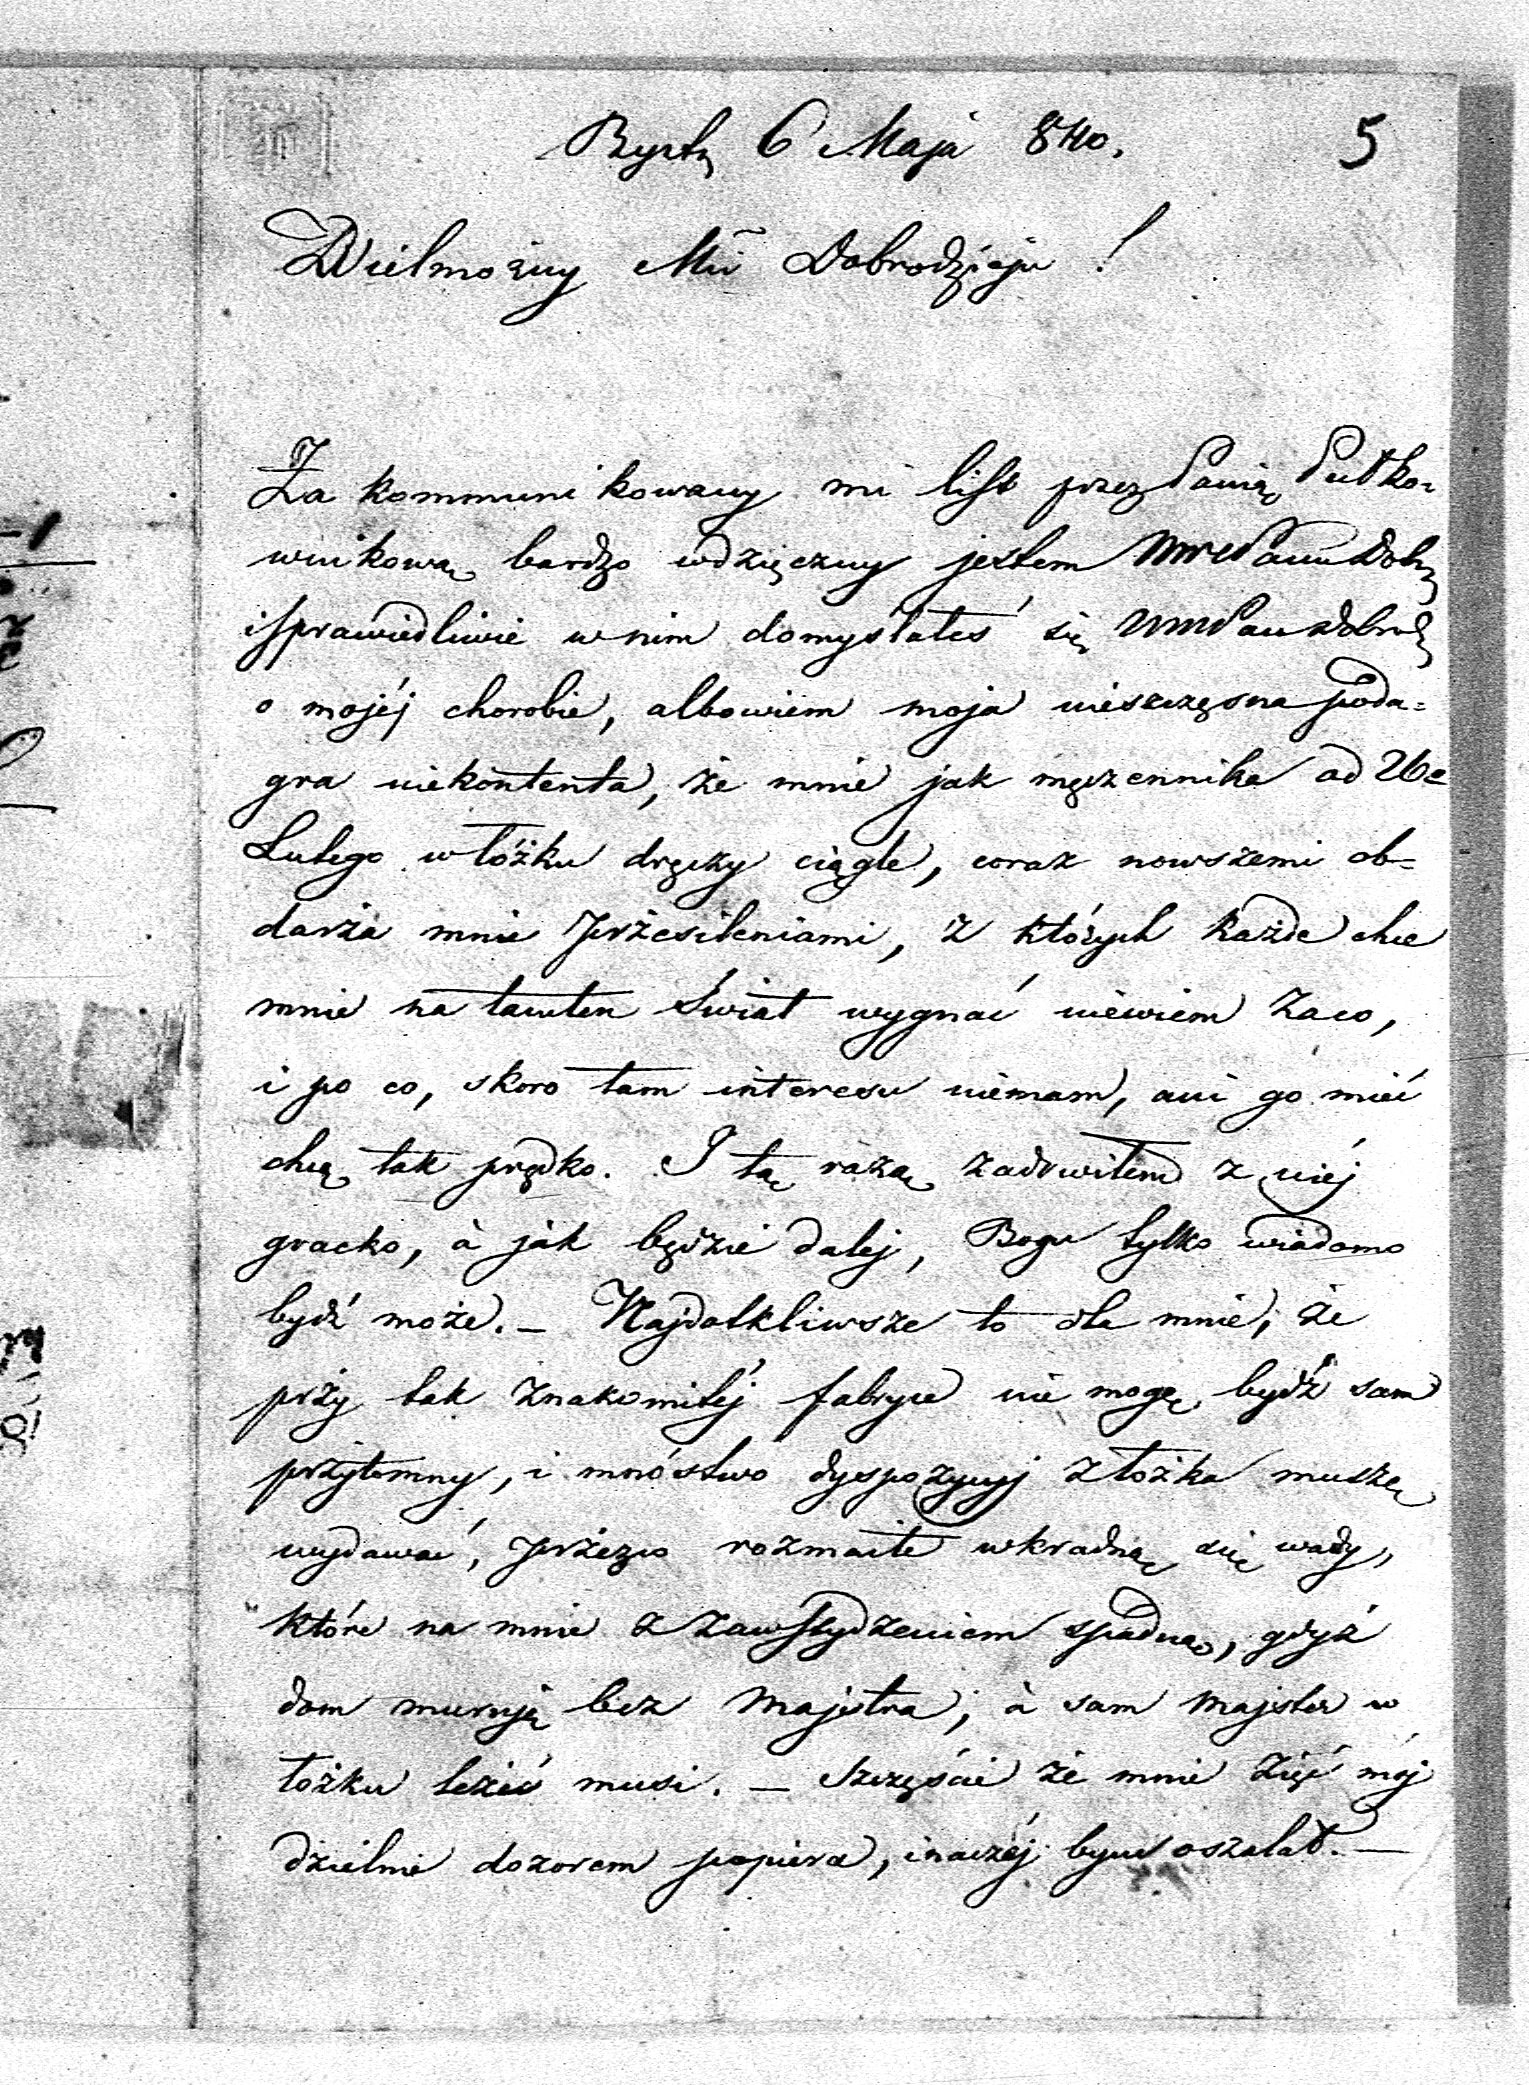 6 Maja 840. 5
Wielmożny Mći Dobrodzieju!
Za kommunikowany mi list przez Panią Pułko-
wnikową bardzo wdzięczny jestem WMPanu Dobr
i sprawiedliwie w nim domyślałeś się WMPan Dobrodz
o mojéj chorobie, albowiem moja nieszczęsna poda=
gra niekontenta, że mnie jak męczennika od 26o
Lutego w łóżku dręczy ciągle, coraz nowszemi ob-
darza mnie przesileniami, z których każde chce
mnie na tamten świat wygnać niewiem zaco,
i po co, skoro tam interesu niemam, ani go mieć
chcę tak prędko. I tą razą zadrwiłem z niéj
gracko, à jak będzie daléj, Bogu tylko wiadomo
bydź może. — Najdolkliwsze to dla mnie, że
przy tak znakomitéj fabryce nie mogę bydź sam
przytomny, i mnóstwo dyspozycyj z łóżka muszę
wydawać, przezco rozmaite wkradną się wady,
które na mnie z zawstydzeniem spadną, gdyż
dom murują bez Majstra, à sam Majster w
łożku leżéć musi. — Szczęście że mnie Zięć mój
dzielnie dozorem popiera, inaczéj bym oszalał. —